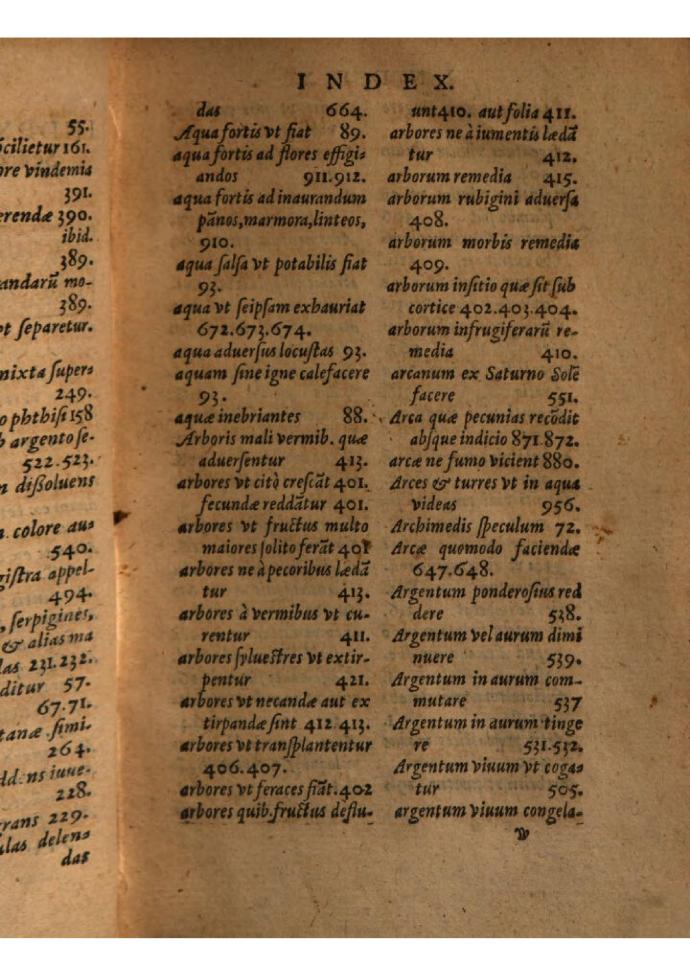 55.
cilietur 161.
re vindemia
391.
erendæ 390.
ibid.
389.
andarū mo-
389.
t separetur.
nixta super-
249.
o phthisi 158
argento se-
522.523.
dißoluens
colore au-
540.
gistra appel-
494.
serpigines,
& alias ma
las 231.232.
ditur 57.
67.71.
tanæ simi-
264.
dd ns iuue-
228.
rans 229.
ulas delen-
das
INDEX.
das 664.
Aqua fortis vt fiat 89.
aqua fortis ad flores effigi-
andos 911.912.
aqua fortis ad inaurandum
pānos, marmora, linteos,
910.
aqua salsa vt potabilis fiat
93.
aqua vt seipsam exhauriat
672.673.674.
aqua aduersus locustas 93.
aquam sine igne calefacere
93.
aquæ inebriantes 88.
Arboris mali vermib. quæ
aduersentur 413.
arbores vt citò crescāt 401.
fecundæ reddātur 401.
arbores vt fructus multo
maiores solito ferāt 401
arbores ne à pecoribus lædā
tur 413.
arbores à vermibus vt cu-
rentur 411.
arbores syluestres vt extir-
pentur 421.
arbores vt necandæ aut ex
tirpandæ sint 412 413.
arbores vt transplantentur
406.407.
arbores vt feraces fiāt.402
arbores quib.fructus deflu-
unt410. aut folia 411.
arbores ne à iumentis lædā
tur 412.
arborum remedia 415.
arborum rubigini aduersa
408.
arborum morbis remedia
409.
arborum insitio quæ fit sub
cortice 402.403.404.
arborum infrugiferarū re-
media 410.
arcanum ex Saturno Solē
facere 551.
Arca quæ pecunias recōdit
absque indicio 871.872.
arcæ ne fumo vicient 880.
Arces & turres vt in aqua
videas 956.
Archimedis speculum 72.
Arcæ quomodo faciendæ
647.648.
Argentum ponderosius red
dere 538.
Argentum vel aurum dimi
nuere 539.
Argentum in aurum com-
mutare 537
Argentum in aurum tinge
re 531.532.
Argentum viuum vt coga-
tur 505.
argentum viuum congela-